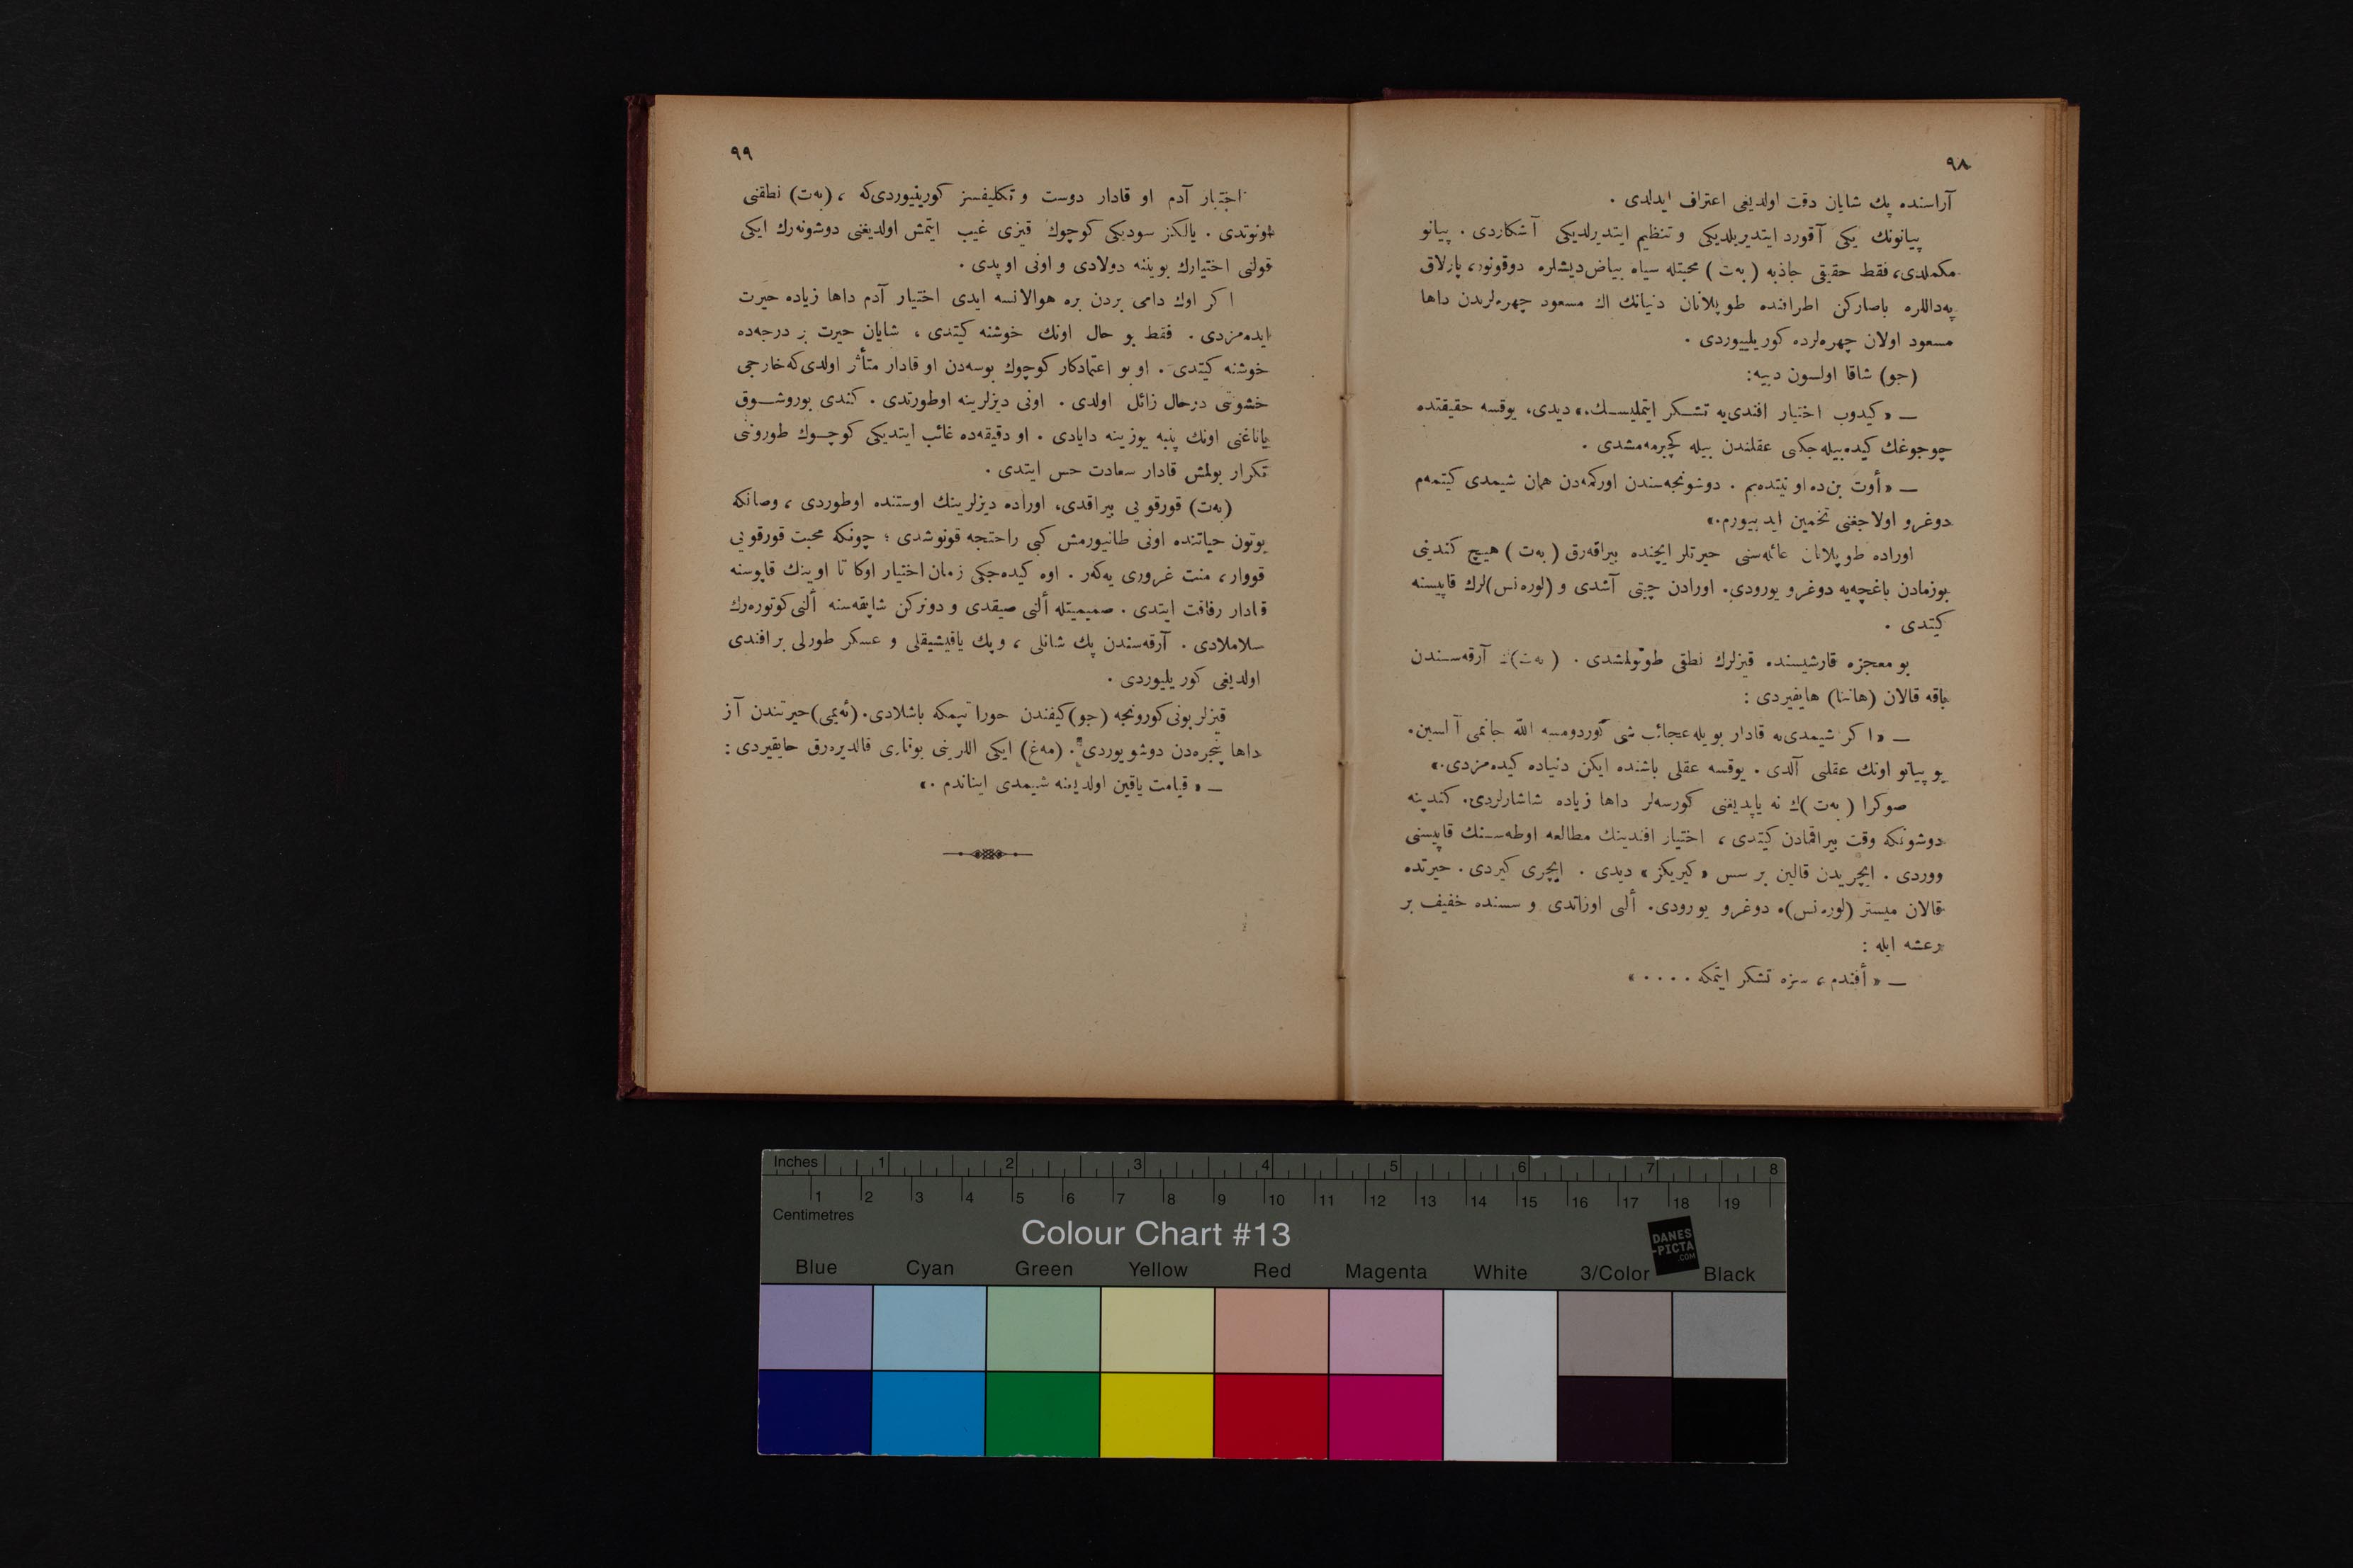 ٩٨
آراسنده پك شایان دقت اولدیغی اعتراف ایدلدی .
پیانونك یكی آقورد ایتدیریلدیكی و تنظیم ایتدیرلدیكی آشكاردی . پیانو
مكملدی، فقط حقیقی جاذبه (بەت) محبتله سیاه بیاض دیشلره دوقونور، پارلاق
پەداللره باصاركن اطرافنده طوپلانان دنیانك اك مسعود چهره‌لرندن داها
مسعود اولان چهره‌لرده كوریلییوردی .
(جو) شاقا اولسون دییه:
— «كیدوب اختیار افندی‌یه تشـكر ایتملیسـك.» دیدی، یوقسه حقیقتده
چوجوغك كیده‌بیله‌جكی عقلندن بیله كچیرمه‌مشدی .
— «أوت بن‌ده او نیتده‌یم . دوشونجه‌سندن اوركمه‌دن همان شیمدی كیتمه‌م
دوغرو اولاجغنی تخمین ایدییورم.»
اوراده طوپلانان عائله‌سنی حیرتلر ایچنده بیراقه‌رق (بەت) هیچ كندینی
بوزمادن باغچه‌یه دوغرو یورودی. اورادن چیتی آشدی و (لوره‌نس)لرك قاپیسنه
كیتدی .
بو معجزه قارشیسنده قیزلرك نطقی طوتولمشدی . (بەت)ك آرقه‌سـندن
باقه قالان (هاننا) هایقیردی :
— «اكر شیمدی‌یه قادار بویله عجائب شی كوردومسه اللّه جانمی آلسین.
بو پیانو اونك عقلنی آلدی . یوقسه عقلی باشنده ایكن دنیاده كیده‌مزدی.»
صوكرا (بەت)ك نه یاپدیغنی كورسه‌لر داها زیاده شاشارلردی. كندینه
دوشونمكه وقت بیراقمادن كیتدی ، اختیار افندینك مطالعه اوطه‌سـنك قاپیسنی
ووردی . ایچریدن قالین بر سس «كیریكز» دیدی . ایچری كیردی . حیرتده
قالان میستر (لوره‌نس)ه دوغرو یورودی. ألنی اوزاتدی و سسنده خفیف بر
رعشه ایله :
— «أفندم ، سزه تشكر ایتمكه ....»
٩٩
اختیار آدم او قادار دوست و تكلیفسز كورینیوردی‌كه ، (بەت) نطقنی
اونوتدی . یالكز سودیكی كوچوك قیزی غیب ایتمش اولدیغنی دوشونه‌رك ایكی
قولنی اختیارك بویننه دولادی و اونی اوپدی .
اكر اوك دامی بردن بره هوالانسه ایدی اختیار آدم داها زیاده حیرت
ایده‌مزدی . فقط بو حال اونك خوشنه كیتدی ، شایان حیرت بر درجه‌ده
خوشنه كیتدی . او بو اعتمادكار كوچوك بوسه‌دن او قادار متأثر اولدی‌كه خارجی
خشونتی درحال زائل اولدی . اونی دیزلرینه اوطورتدی . كندی بوروشـوق
یاناغنی اونك پنبه یوزینه دایادی . او دقیقه‌ده غائب ایتدیكی كوچـوك طوروننی
تكرار بولمش قادار سعادت حس ایتدی .
(بەت) قورقویی بیراقدی، اوراده دیزلرینك اوستنده اوطوردی ، وصانكه
بوتون حیاتنده اونی طانیورمش كبی راحتجه قونوشدی ؛ چونكه محبت قورقویی
قووار، منت غروری یه‌كەر . اوه كیده‌جكی زمان اختیار اوكا تا اوینك قاپوسنه
قادار رفاقت ایتدی . صمیمیتله ألنی صیقدی و دونركن شاپقه‌سنه ألنی كوتوره‌رك
سلاملادی . آرقه‌سندن پك شانلی ، و پك یاقیشیقلی و عسكر طورلی بر افندی
اولدیغی كوریلیوردی .
قیزلر بونی كورونجه (جو) كیفندن حورا تپمكه باشلادی. (ئه‌یمی) حیرتندن آز
داها پنجره‌دن دوشویوردی . (مه‌غ) ایكی اللرینی یوقاری قالدیره‌رق حایقیردی :
— «قیامت یاقین اولدیغنه شیمدی ایناندم .»
Inches 1 2 3 4 5 6 7 8
1 2 3 4 5 6 7 8 9 10 11 12 13 14 15 16 17 18 19
Centimetres
Colour Chart #13
DANES
-PICTA
.COM
Blue Cyan Green Yellow Red Magenta White 3/Color Black